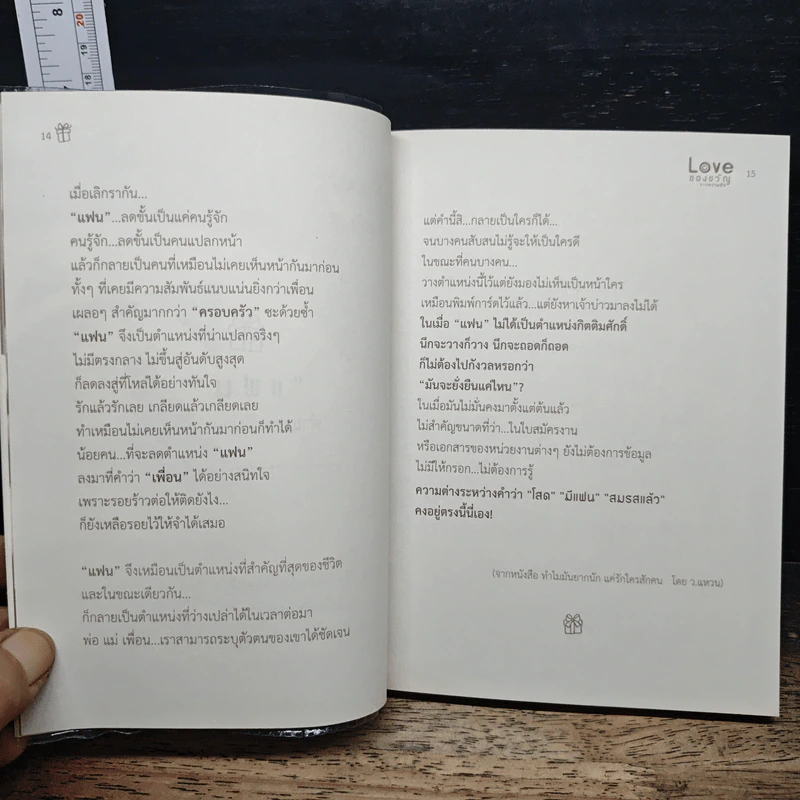 8
20
19
18
14
เมื่อเลิกรากัน...
“แฟน”...ลดขั้นเป็นแค่คนรู้จัก
คนรู้จัก...ลดขั้นเป็นคนแปลกหน้า
แล้วก็กลายเป็นคนที่เหมือนไม่เคยเห็นหน้ากันมาก่อน
ทั้งๆ ที่เคยมีความสัมพันธ์แนบแน่นยิ่งกว่าเพื่อน
เผลอๆ สำคัญมากกว่า “ครอบครัว” ซะด้วยซ้ำ
“แฟน” จึงเป็นตำแหน่งที่น่าแปลกจริงๆ
ไม่มีตรงกลาง ไม่ขึ้นสู่อันดับสูงสุด
ก็ลดลงสู่ที่โหล่ได้อย่างทันใจ
รักแล้วรักเลย เกลียดแล้วเกลียดเลย
ทำเหมือนไม่เคยเห็นหน้ากันมาก่อนก็ทำได้
น้อยคน...ที่จะลดตำแหน่ง “แฟน”
ลงมาที่คำว่า “เพื่อน” ได้อย่างสนิทใจ
เพราะรอยร้าวต่อให้ติดยังไง...
ก็ยังเหลือรอยไว้ให้จำได้เสมอ
“แฟน” จึงเหมือนเป็นตำแหน่งที่สำคัญที่สุดของชีวิต
และในขณะเดียวกัน...
ก็กลายเป็นตำแหน่งที่ว่างเปล่าได้ในเวลาต่อมา
พ่อ แม่ เพื่อน...เราสามารถระบุตัวตนของเขาได้ชัดเจน
Love
ของขวัญ
จากความรัก
15
แต่คำนี้สิ...กลายเป็นใครก็ได้...
จนบางคนสับสนไม่รู้จะให้เป็นใครดี
ในขณะที่คนบางคน...
วางตำแหน่งนี้ไว้แต่ยังมองไม่เห็นเป็นหน้าใคร
เหมือนพิมพ์การ์ดไว้แล้ว...แต่ยังหาเจ้าบ่าวมาลงไม่ได้
ในเมื่อ “แฟน” ไม่ได้เป็นตำแหน่งกิตติมศักดิ์
นึกจะวางก็วาง นึกจะถอดก็ถอด
ก็ไม่ต้องไปกังวลหรอกว่า
“มันจะยั่งยืนแค่ไหน”?
ในเมื่อมันไม่มั่นคงมาตั้งแต่ต้นแล้ว
ไม่สำคัญขนาดที่ว่า...ในใบสมัครงาน
หรือเอกสารของหน่วยงานต่างๆ ยังไม่ต้องการข้อมูล
ไม่มีให้กรอก...ไม่ต้องการรู้
ความต่างระหว่างคำว่า “โสด” “มีแฟน” “สมรสแล้ว”
คงอยู่ตรงนี้นี่เอง!
(จากหนังสือ ทำไมมันยากนัก แค่รักใครสักคน โดย ว.แหวน)